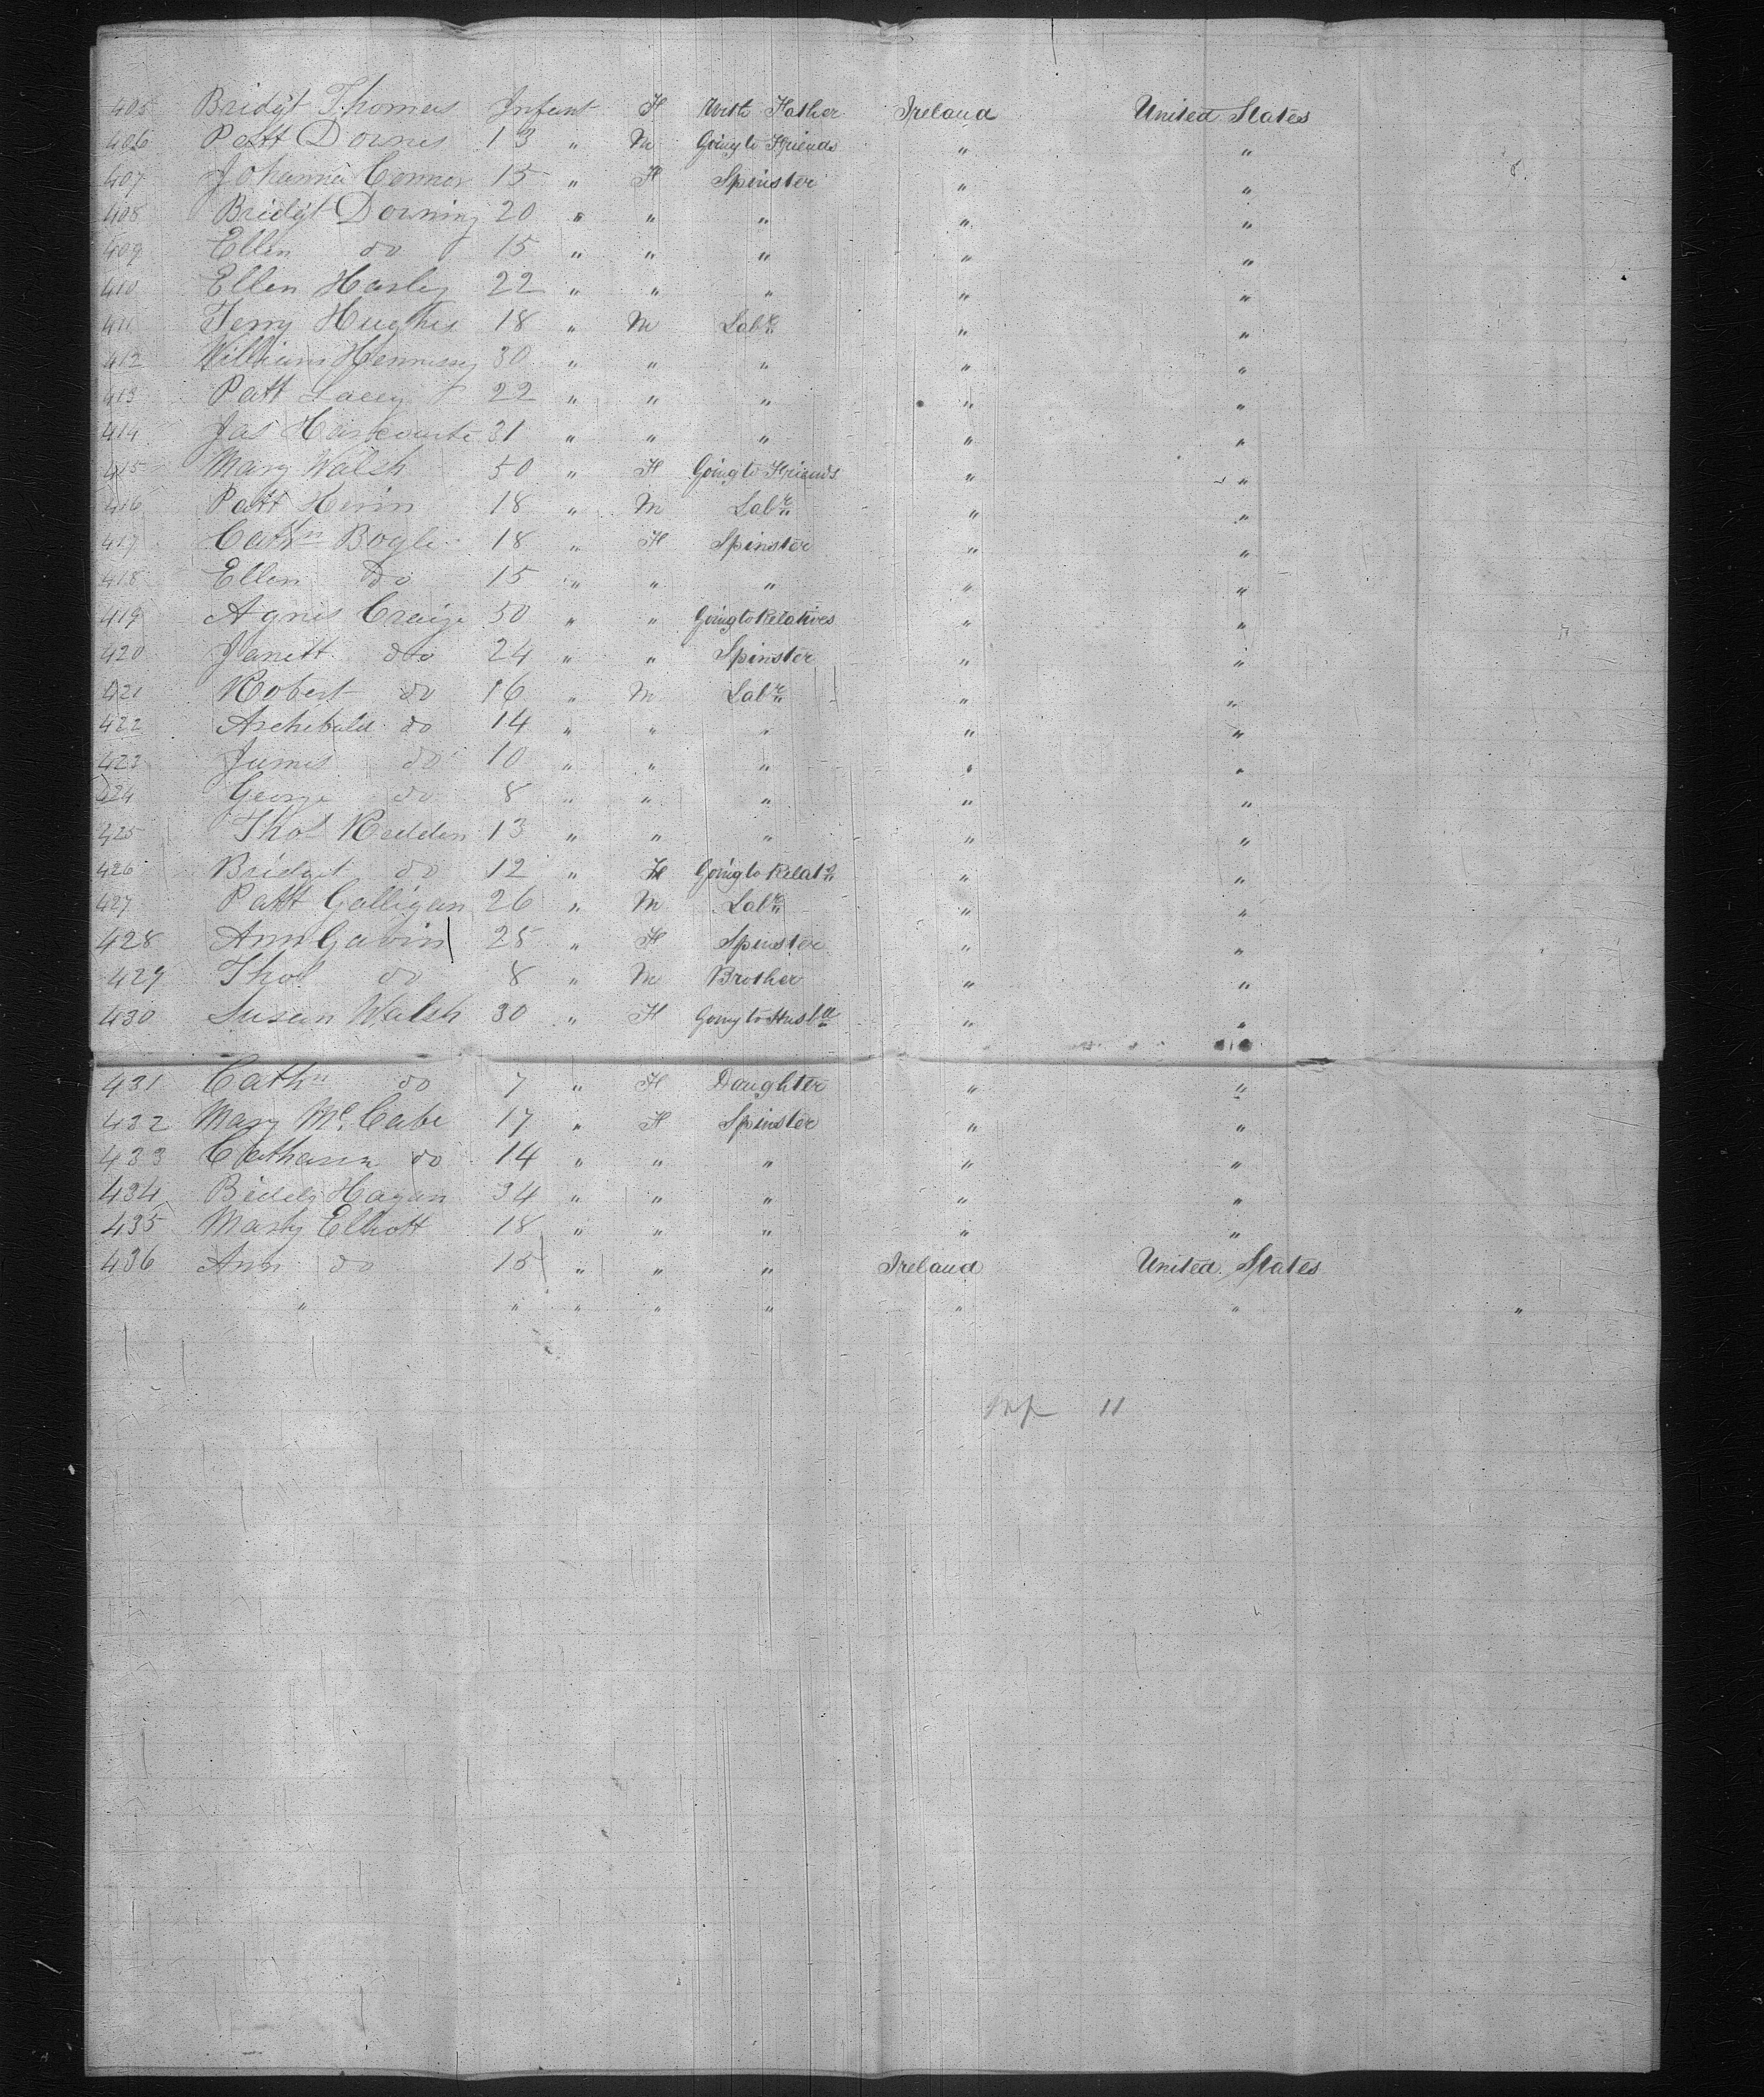 405 Bridgt Thomas Infant F With Father Ireland United States
406 Patt Downes 13 " M Going to Friends " "
407 Johanna Connor 15 " F Spinster " "
408 Bridgt Downing 20 " " " " "
409 Ellen do 15 " " " " "
410 Ellen Harley 22 " " " " "
411 Terry Hughes 18 " M Labr " "
412 William Hennessy 30 " " " " "
413 Patt Lacey 22 " " " " "
414 Jas 31 " " " " "
415 Mary Walsh 50 " F Going to Friends " "
416 Patt 18 " M Labr " "
417 Cathn Bogle 18 " F Spinster " "
418 Ellen Do 15 " " " " "
419 Agnes Craige 50 " " Going to Relatives " "
420 Janett do 24 " " Spinster " "
421 Robert do 16 " M Labr " "
422 Archibald do 14 " " " " "
423 James do 10 " " " " "
424 George do 8 " " " " "
425 Thos Redden 13 " " " " "
426 Bridget do 12 " F Going to Relats " "
427 Patt Galligan 26 " M Labr " "
428 Ann Gavin 25 " F Spinster " "
429 Thos do 8 " M Brother " "
430 Susan Walsh 30 " F Going to Husbd " "
431 Cathn do 7 " F Daughter " "
432 Mary McCabe 17 " F Spinster " "
433 Catharin do 14 " " " " "
434 Biddy Hagan 34 " " " " "
435 Marty Elliott 18 " " " " "
436 Ann do 15 " " " Ireland United States
" " " " " " " "
11